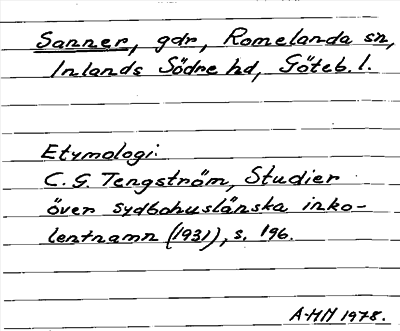 Sanner, gdr, Romelanda sn,
Inlands Södre hd, Göteb. l.
Etymologi:
C. G. Tengström, Studier
över sydbohuslänska inko-
lentnamn (1931), s. 196.
AHH 1978.